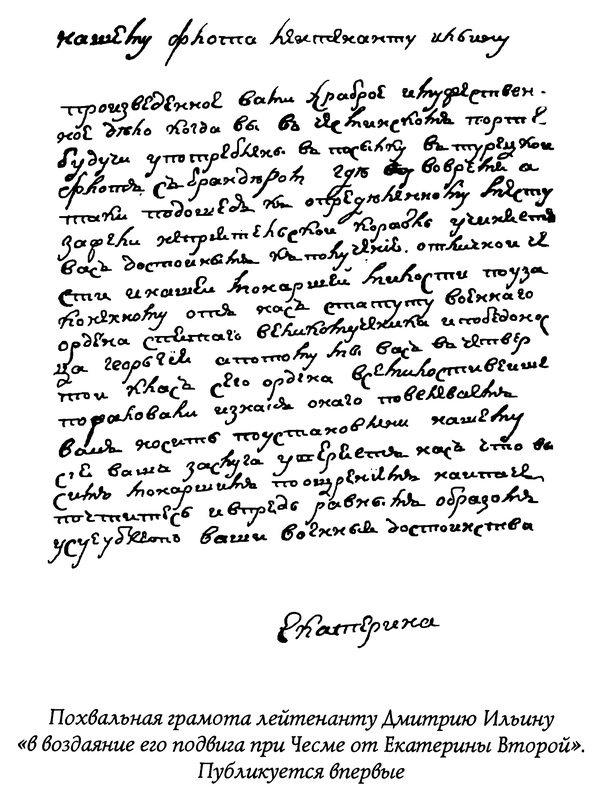 нашему флота лейтенанту ильину
произведенное вами храброе имужествен-
ное дѣло когда вы въ чесминскомъ порте
будучи употреблены въ посылку въ турецкои
флотъ съ брандеромъ гдѣ вовремя а
таки подошедъ къ опредѣленному месту
зажгли неприятельскои корабль учинило
васъ достоинымъ къ получению отличнои че
сти инашеи монаршей милости поуза
коненному отъ насъ статуту военнаго
ордена святаго великомученика ипобедонос
ца георьгия апотому мы васъ въ четвер
тои класъ сего ордена всемилостивеише
пожаловали изнакъ онаго повелеваемъ
вамъ носить поустановлени нашему
сия ваша заслуга уверяетъ насъ что вы
симъ монаршимъ поощрениемъ наипаче
почтитесь ивпредь равнымъ образомъ
усугубляпь ваши военныя достоинства
Екатерина
Похвальная грамота лейтенанту Дмитрию Ильину
«в воздаяние его подвига при Чесме от Екатерины Второй».
Публикуется впервые